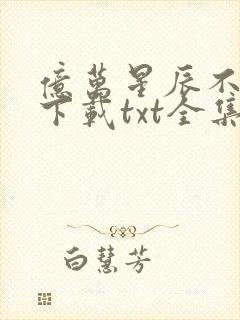 億萬星辰不
下載txt全集
白慧芳